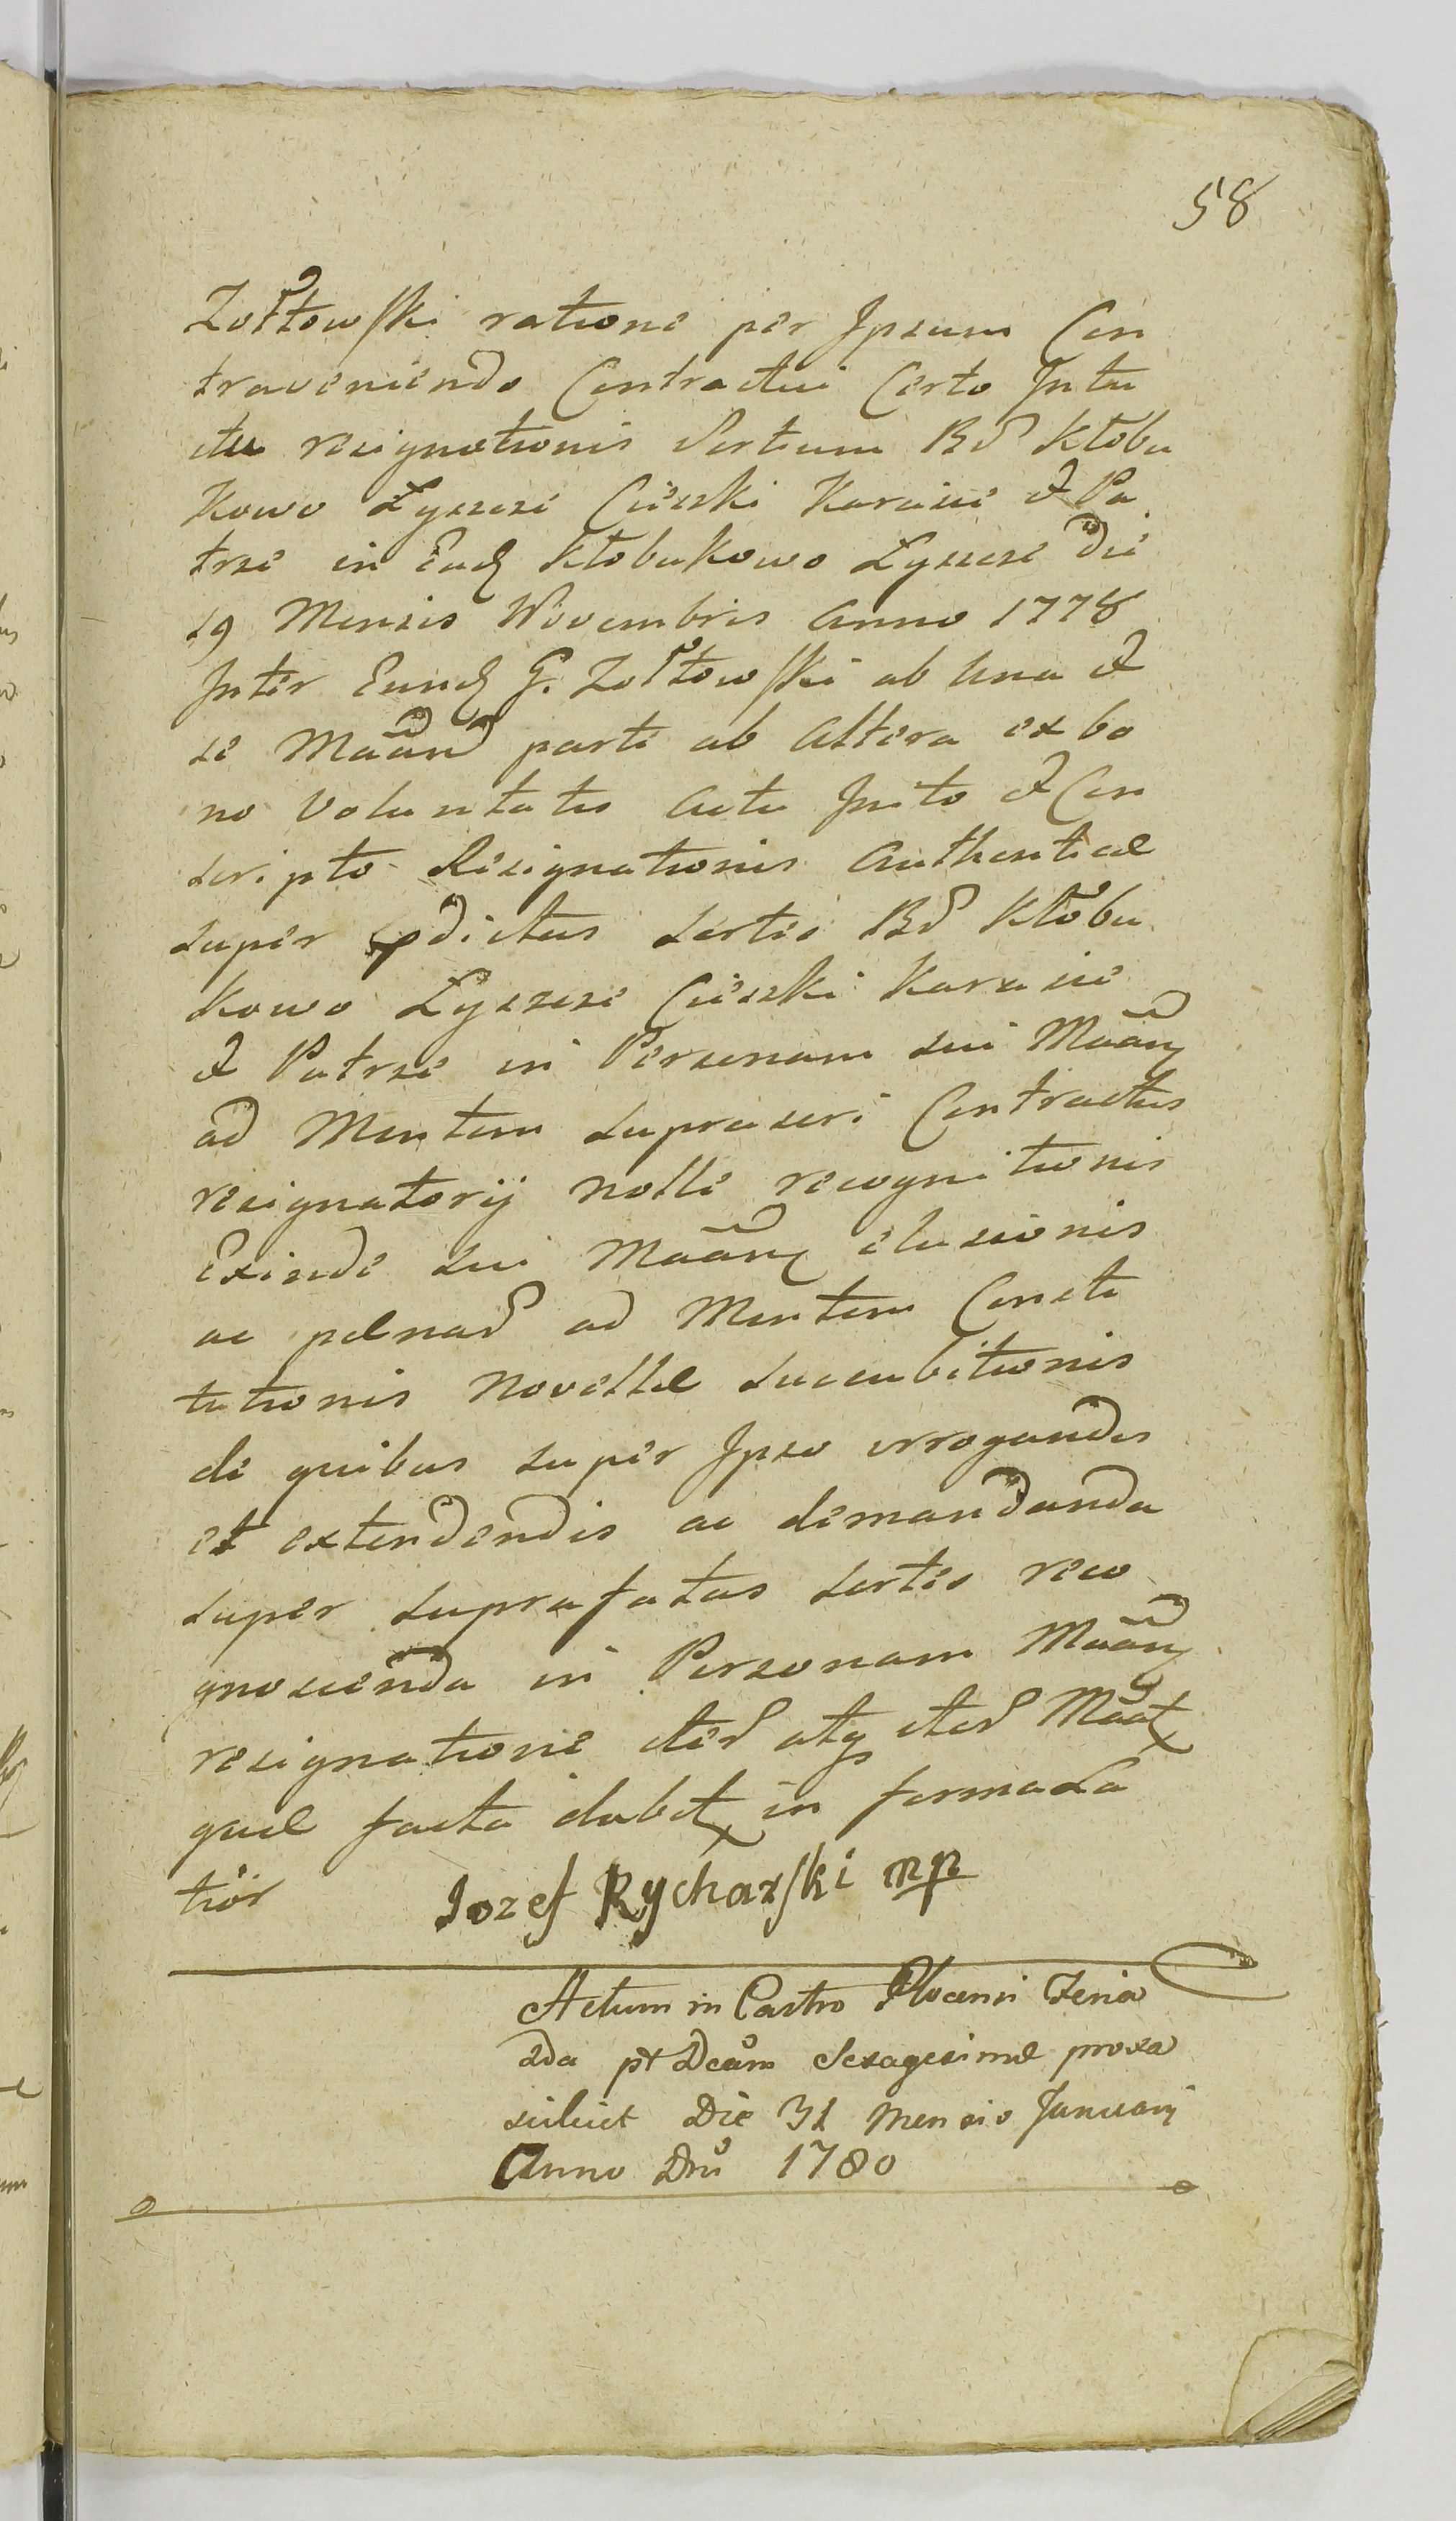 58
Zołtowski ratione per Ipsum Con
traveniendo Contractui Certo Intu
itu resignationis Sortium Bd Kłobu
kowo Łyszcze Cieszki Karasie et Pa
trze in Ead Kłobukowo Łyszcze die
19 Mensis Novembris Anno 1778
Inter Eund G. Zołtowski ab una et
se Maand parte ab altera ex bo
no Voluntatis actu Inito et Con
scripto Resignationis Authenticae
super pdictas sortes Bd Kłobu
kowo Łyszcze Cieszki Karasie
et Patrze in Personam sui Maan
ad Mentem supraseri Contractus
resignatorij nolle recognitionis
Exinde sui Maan elusionis
ac paenad ad Mentem Consti
tutionis Novellae succubitionis
de quibus super Ipso irrogandis
et extendendis ac demandanda
super suprafatas sortes reco
gnoscenda in Personam Maan
resignatione atq Maat
quae facta dabit in forma La
tiör
Iozef Rycharski mp
Actum in Castro Plocensi Feria
2da pt Dcam Sexagesimae proxa
scilicet Die 31 Mensis Januarij
Anno Dni 1780